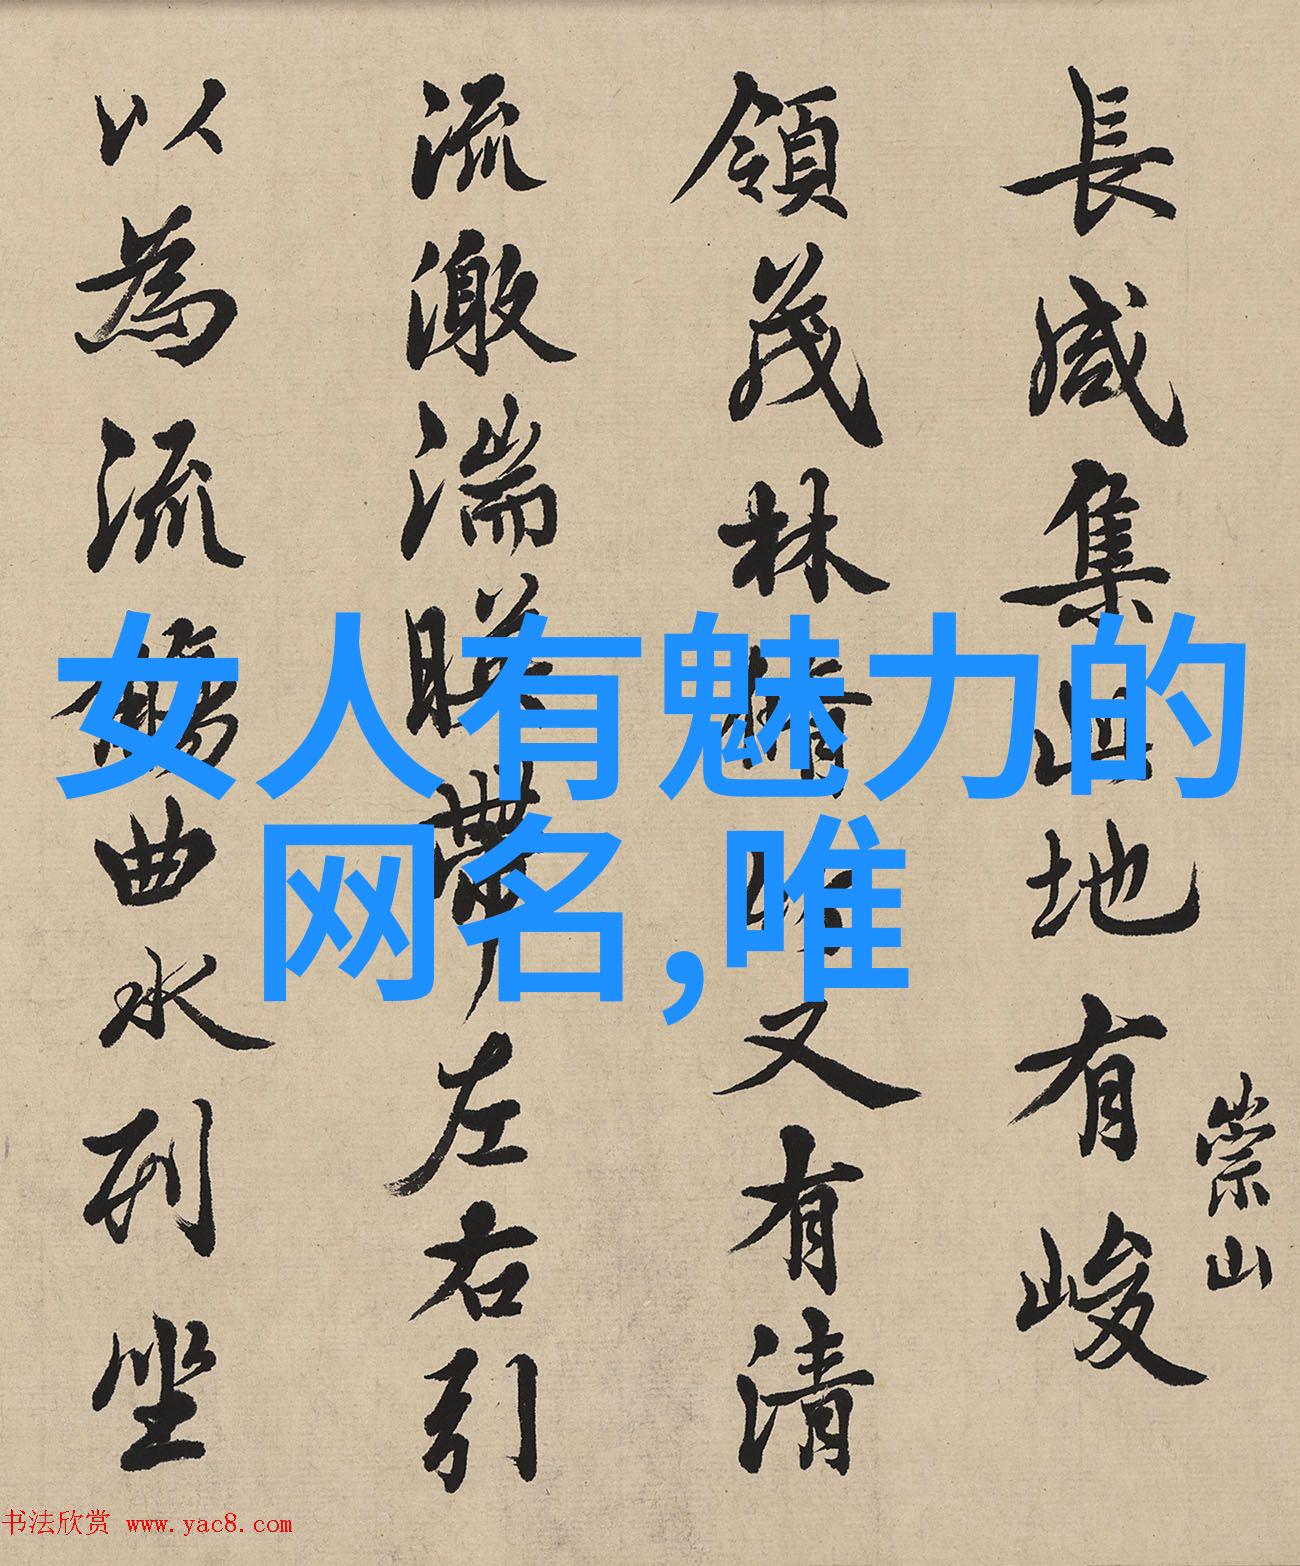 長咸集此地有峻
崇山
領茂林脩竹又有清
流激湍暎帶左右引
以為流觴曲水列坐
女人有魅力的
网名,唯
书法欣赏 www.yac8.com